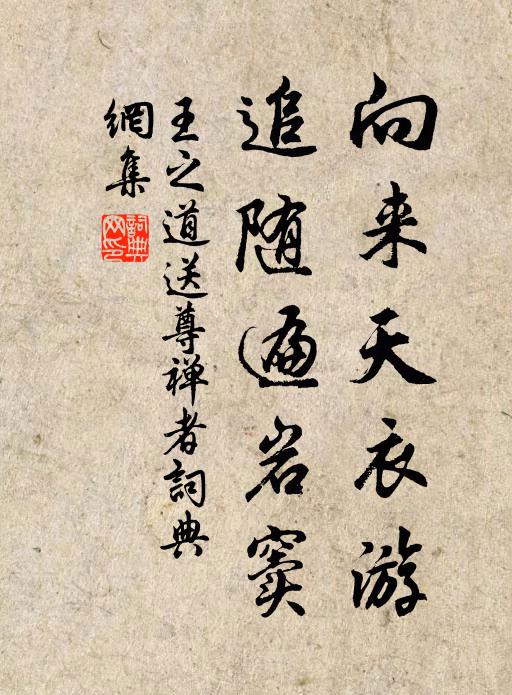 向来天衣游
追随遍岩窦
王之道送尊禅者詞典
網集
詞典
网印